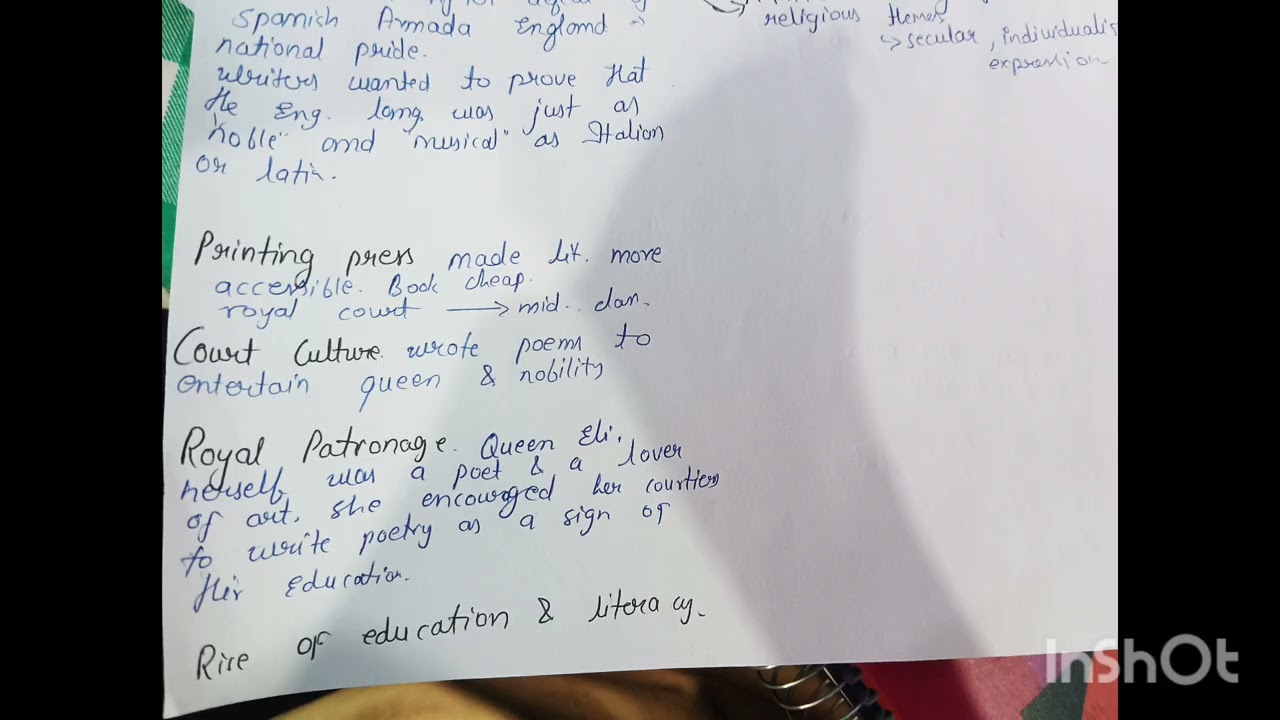 Spanish Armada England →
national pride.
writers wanted to prove that
the Eng. lang. was just as
"noble" and "musical" as Italian
or latin.
religious themes
↳ secular, individualis
expression
Printing press made lit. more
accessible. Book cheap.
royal court → mid. clan.
Court Culture. wrote poems to
entertain queen & nobility
Royal Patronage. Queen Eli.
herself was a poet & a lover
of art. she encouraged her courtiers
to write poetry as a sign of
their education.
Rise of education & literacy.
InShOt